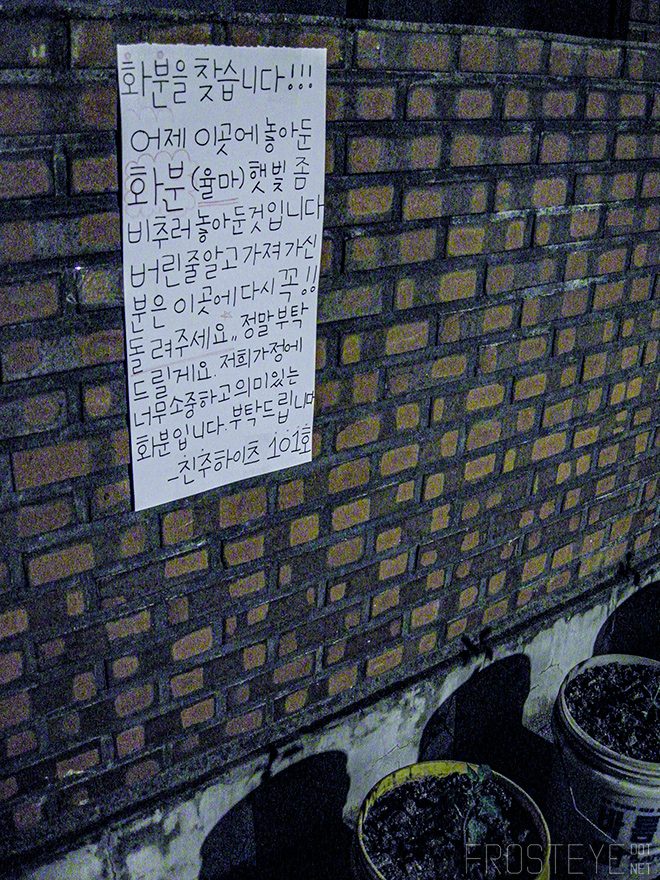 화분을 찾습니다!!!
어제 이곳에 놓아둔
화분(율마)햇빛 좀
비추러 놓아둔것 입니다
버린줄알고 가져가신
분은 이곳에 다시 꼭!!
돌려주세요,, 정말부탁
드릴게요. 저희가정에
너무소중하고 의미있는
화분입니다. 부탁드립니다
-진주하이츠 101호
FROSTEYE DOT NET